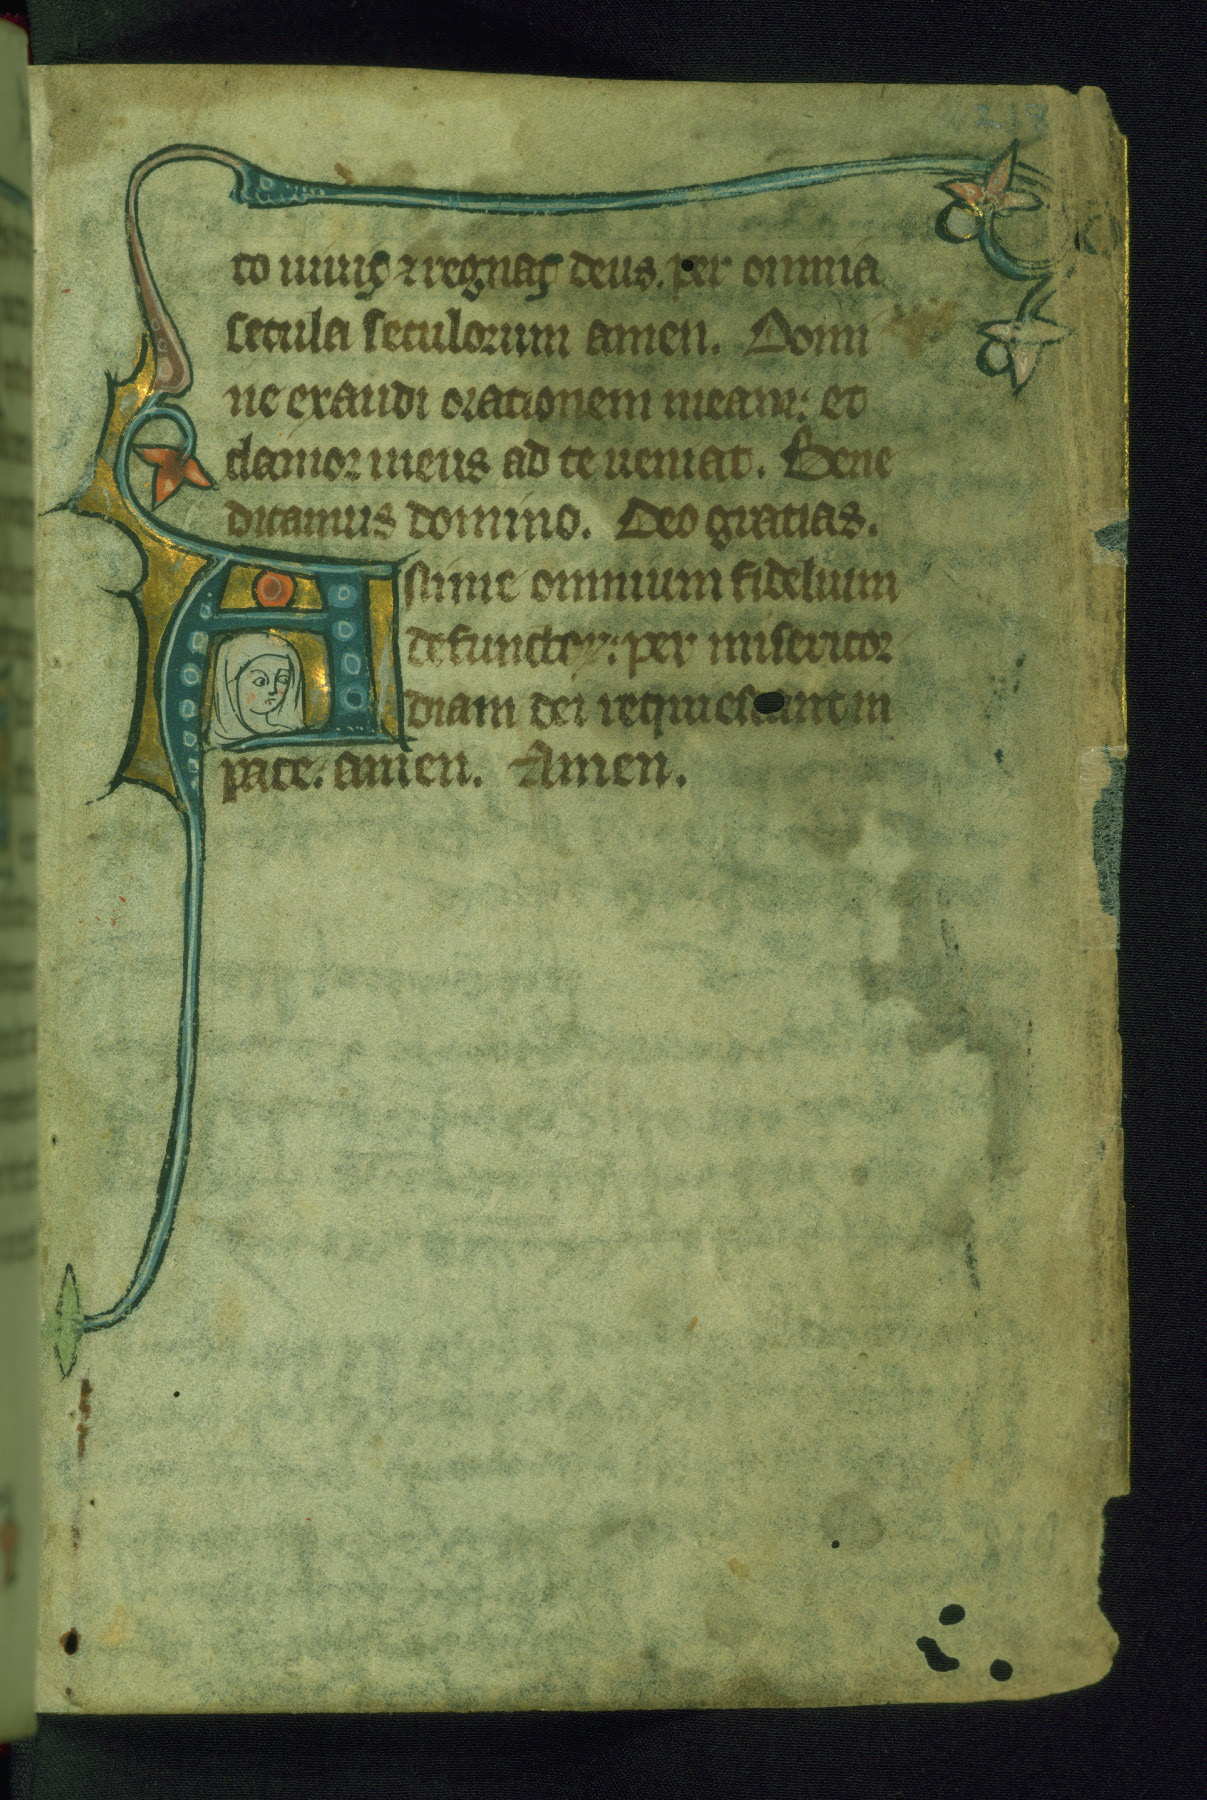 to uiuis ⁊ regnas deus. per omnia
secula seculorum amen. Domi
ne exaudi orationem meam: et
clamor meus ad te ueniat. Bene
dicamus domino. Deo gratias.
Anime omnium fidelium
defunctoꝝ: per misericor
diam dei requiescant in
pace. amen. Amen.